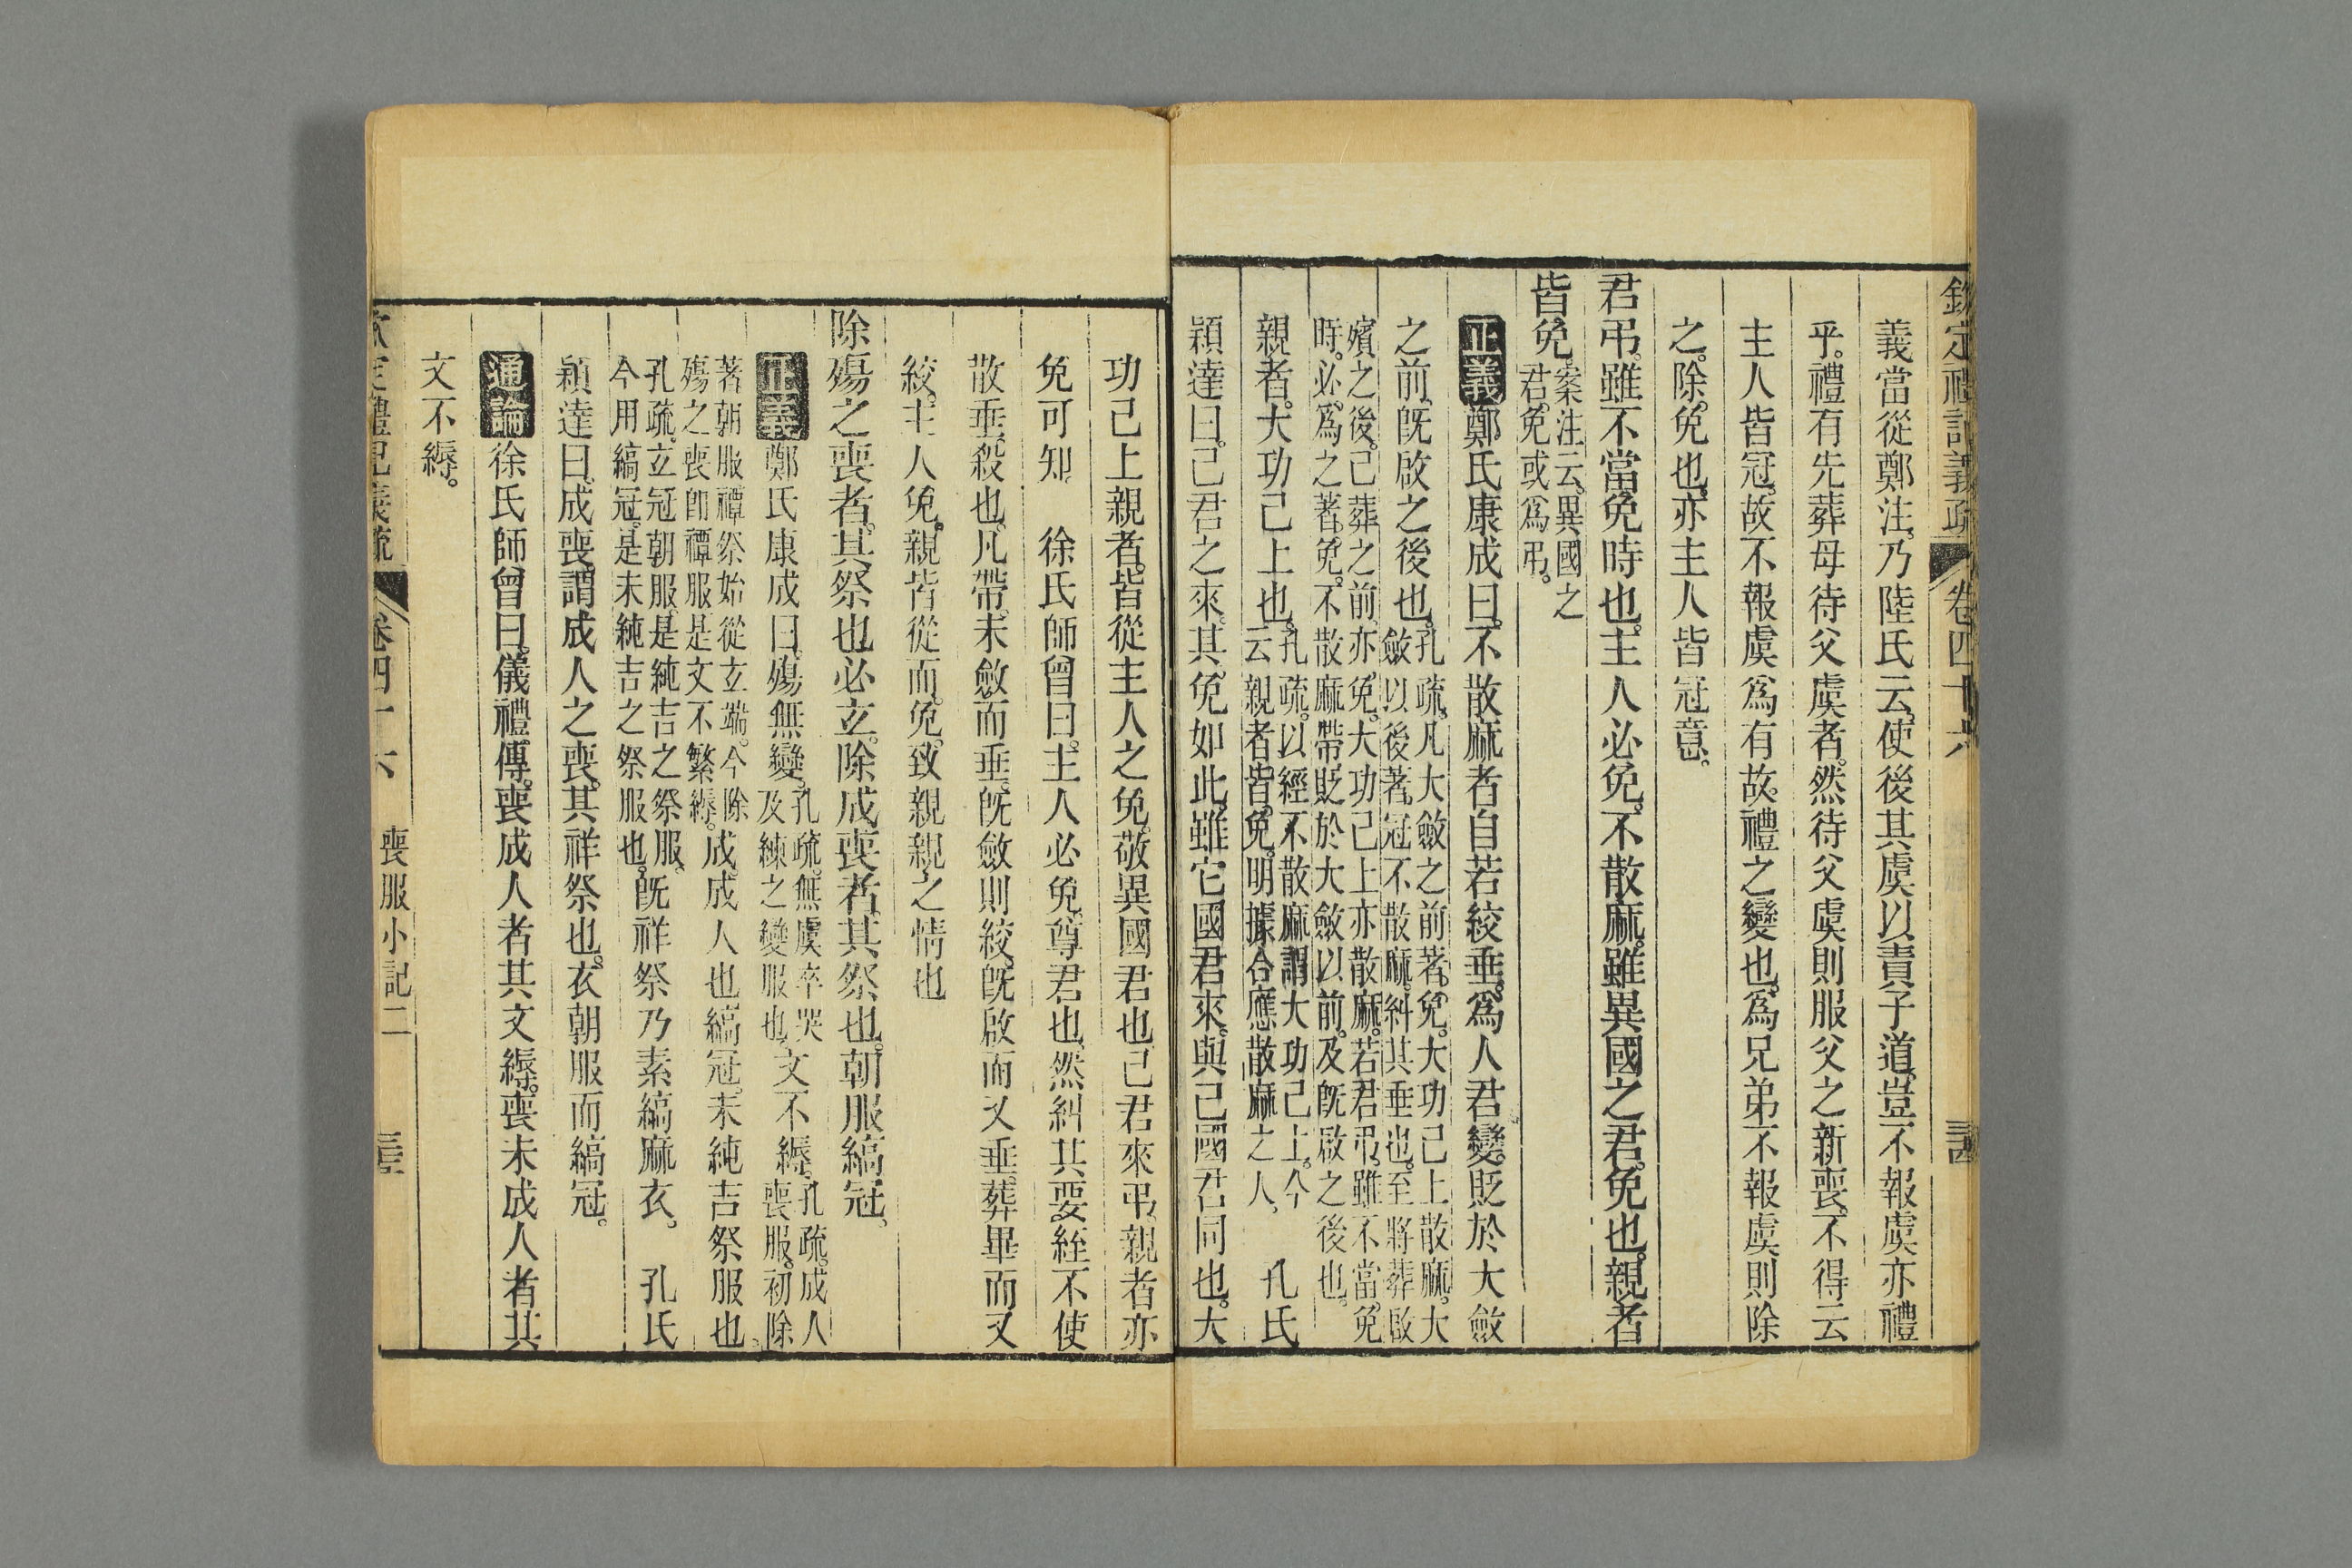 欽定禮記義疏 卷四十六
義當從鄭注。乃陸氏云。使後其虞以責子道。豈不報虞亦禮
乎。禮有先葬母待父虞者。然待父虞則服父之新喪。不得云
主人皆冠。故不報虞爲有故。禮之變也。爲兄弟不報虞則除
之。除。免也。亦主人皆冠意。
君弔。雖不當免時也。主人必免。不散麻。雖異國之君。免也。親者
皆免。案注云。異國之
君。免或爲弔。
正義鄭氏康成曰。不散麻者自若絞垂。爲人君變。貶於大斂
之前。旣啟之後也。孔疏。凡大斂之前著。免。大功已上散麻。大
斂以後著。冠不散麻。糾其垂也。至將葬啟
殯之後。已葬之前。亦免。大功已上亦散麻。若君弔。雖不當。免
時。必。爲之著。免。不散麻帶。貶於大斂以前。及旣啟之後也。
親者。大功已上也。孔疏。以經不散麻。謂大功已上。今
云親者皆。免。明據合應散麻之人。 孔氏
穎達曰。己君之來。其。免如此。雖它國君來。與己國君同也。大
功已上親者。皆從主人之免。敬異國君也。己君來弔。親者亦
免可知。 徐氏師曾曰。主人必免。尊君也。然糾其要絰不使
散垂。殺也。凡帶。未斂而垂。旣斂則絞。旣啟而又垂。葬畢而又
絞。主人免。親皆從而。免。致親親之情也
除殤之喪者。其祭也必玄。除成喪者。其祭也。朝服縞冠。
正義鄭氏康成曰。殤無變。孔疏。無虞卒哭
及練之變服也。文不縟。孔疏。成人
喪服。初除
著朝服。禫祭始從玄端。今除
殤之喪卽禫服。是文不繁縟。成。成人也縞冠。未純吉祭服也。
孔疏。玄冠朝服。是純吉之祭服。
今用縞冠。是未純吉之祭服也。旣祥祭乃素縞麻衣。 孔氏
穎達曰。成喪。謂成人之喪。其祥祭也。衣朝服而縞冠。
通論徐氏師曾曰。儀禮傳。喪成人者其文縟。喪未成人者其
文不縟。
欽定禮記義疏 卷四十六 喪服小記二